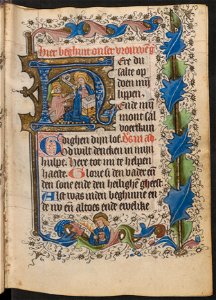 Hier beghint onser vrouwe g
Ere du
salte op
doen mij
lippen
Ende mijn
mont sal
voertkun
dighen dijn lof. God
wilt dencken in mijn
hulpe. Here tot mi te helpen
haeste. Glorie si den vader en
den sone ende den heilighe gheest
Alst was inden beghinne en
de nv en altoes ende ewelike